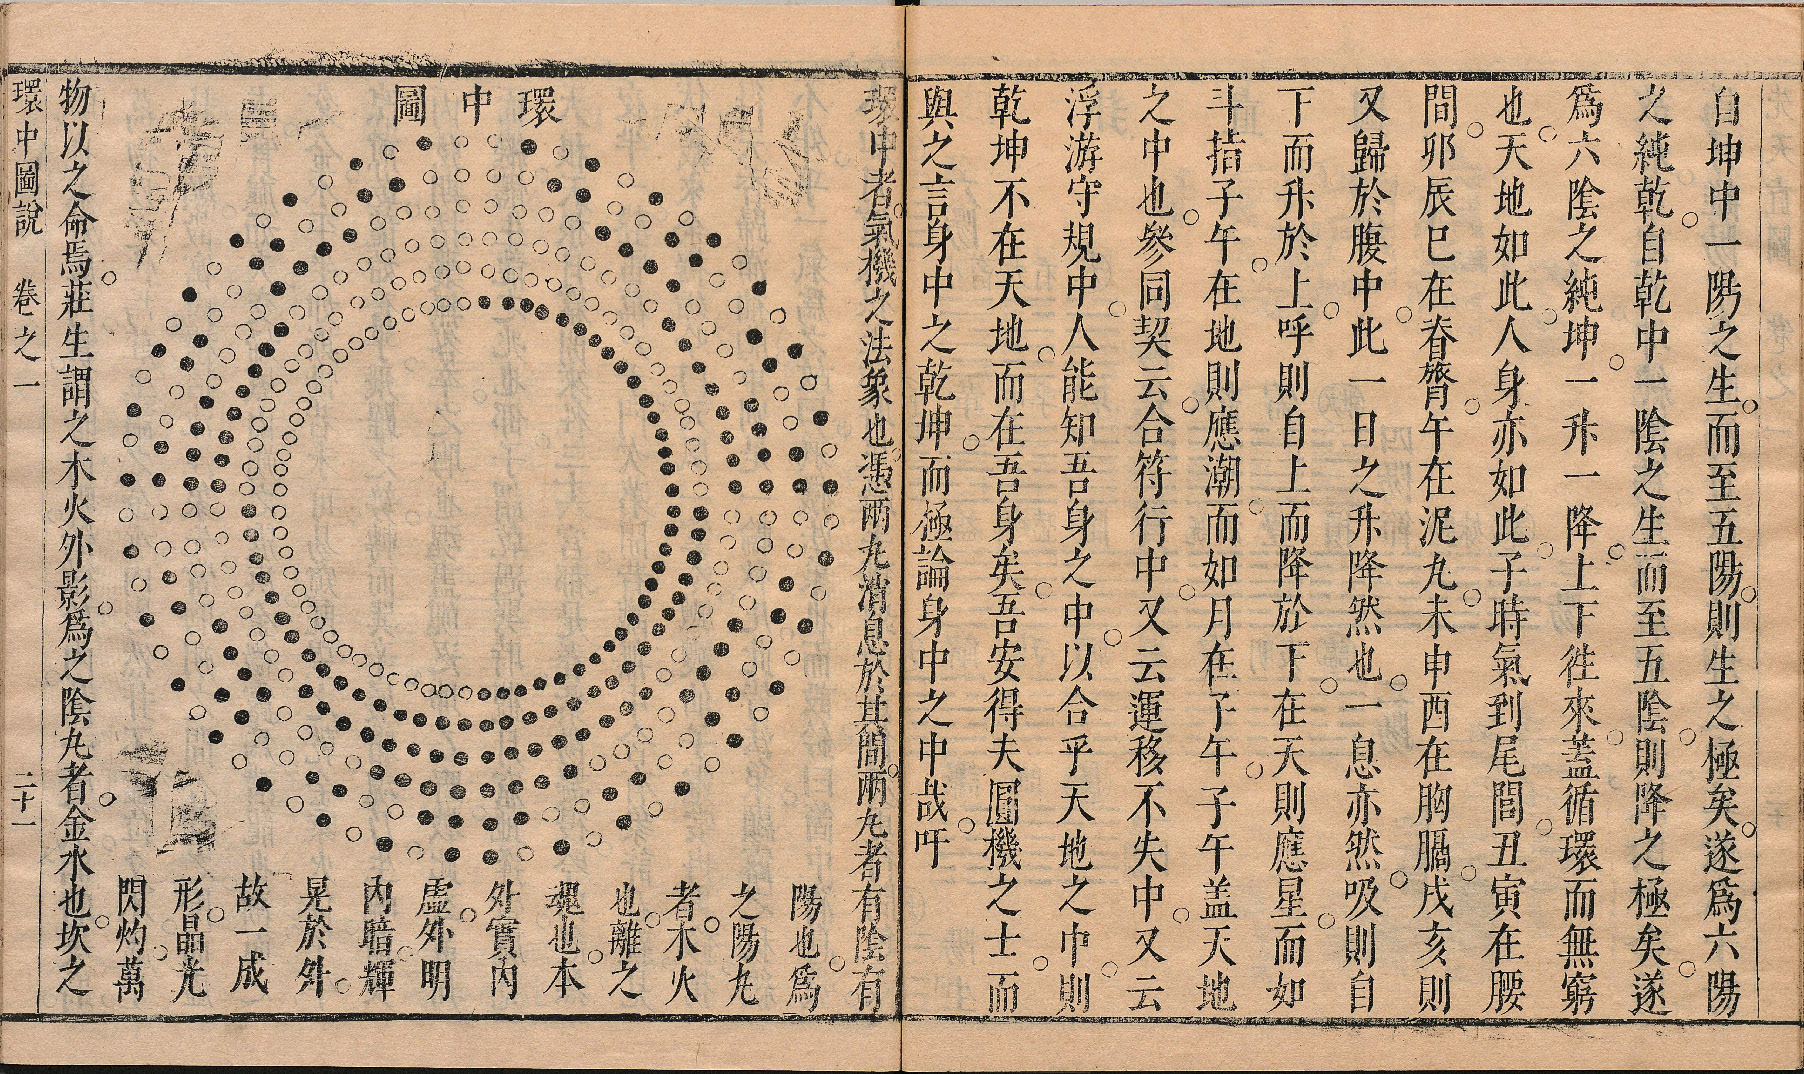 自坤中一陽之生而至五陽則生之極矣遂爲六陽
之純乾自乾中一陰之生而至五陰則降之極矣遂
爲六陰之純坤一升一降上下徃來蓋循環而無窮
也天地如此人身亦如此子時氣到尾閭丑寅在腰
間卯辰巳在脊膂午在泥丸未申酉在胸膈戌亥則
又歸於腹中此一日之升降然也一息亦然吸則自
下而升於上呼則自上而降於下在天則應星而如
斗指子午在地則應潮而如月在子午子午盖天地
之中也叅同契云合符行中又云運移不失中又云
浮游守規中人能知吾身之中以合乎天地之中則
乾坤不在天地而在吾身矣吾安得夫圜機之士而
與之言身中之乾坤而極論身中之中哉吁
環中圖
環中者氣機之法象也憑兩丸消息於其間兩丸者有陰有
陽也爲
之陽丸
者木火
也離之
魂也本
外實內
虛外明
內暗輝
晃於外
故一成
形晶光
閃灼萬
物以之侖焉莊生謂之木火外影爲之陰丸者金水也坎之
環中圖說　卷之一　二十一